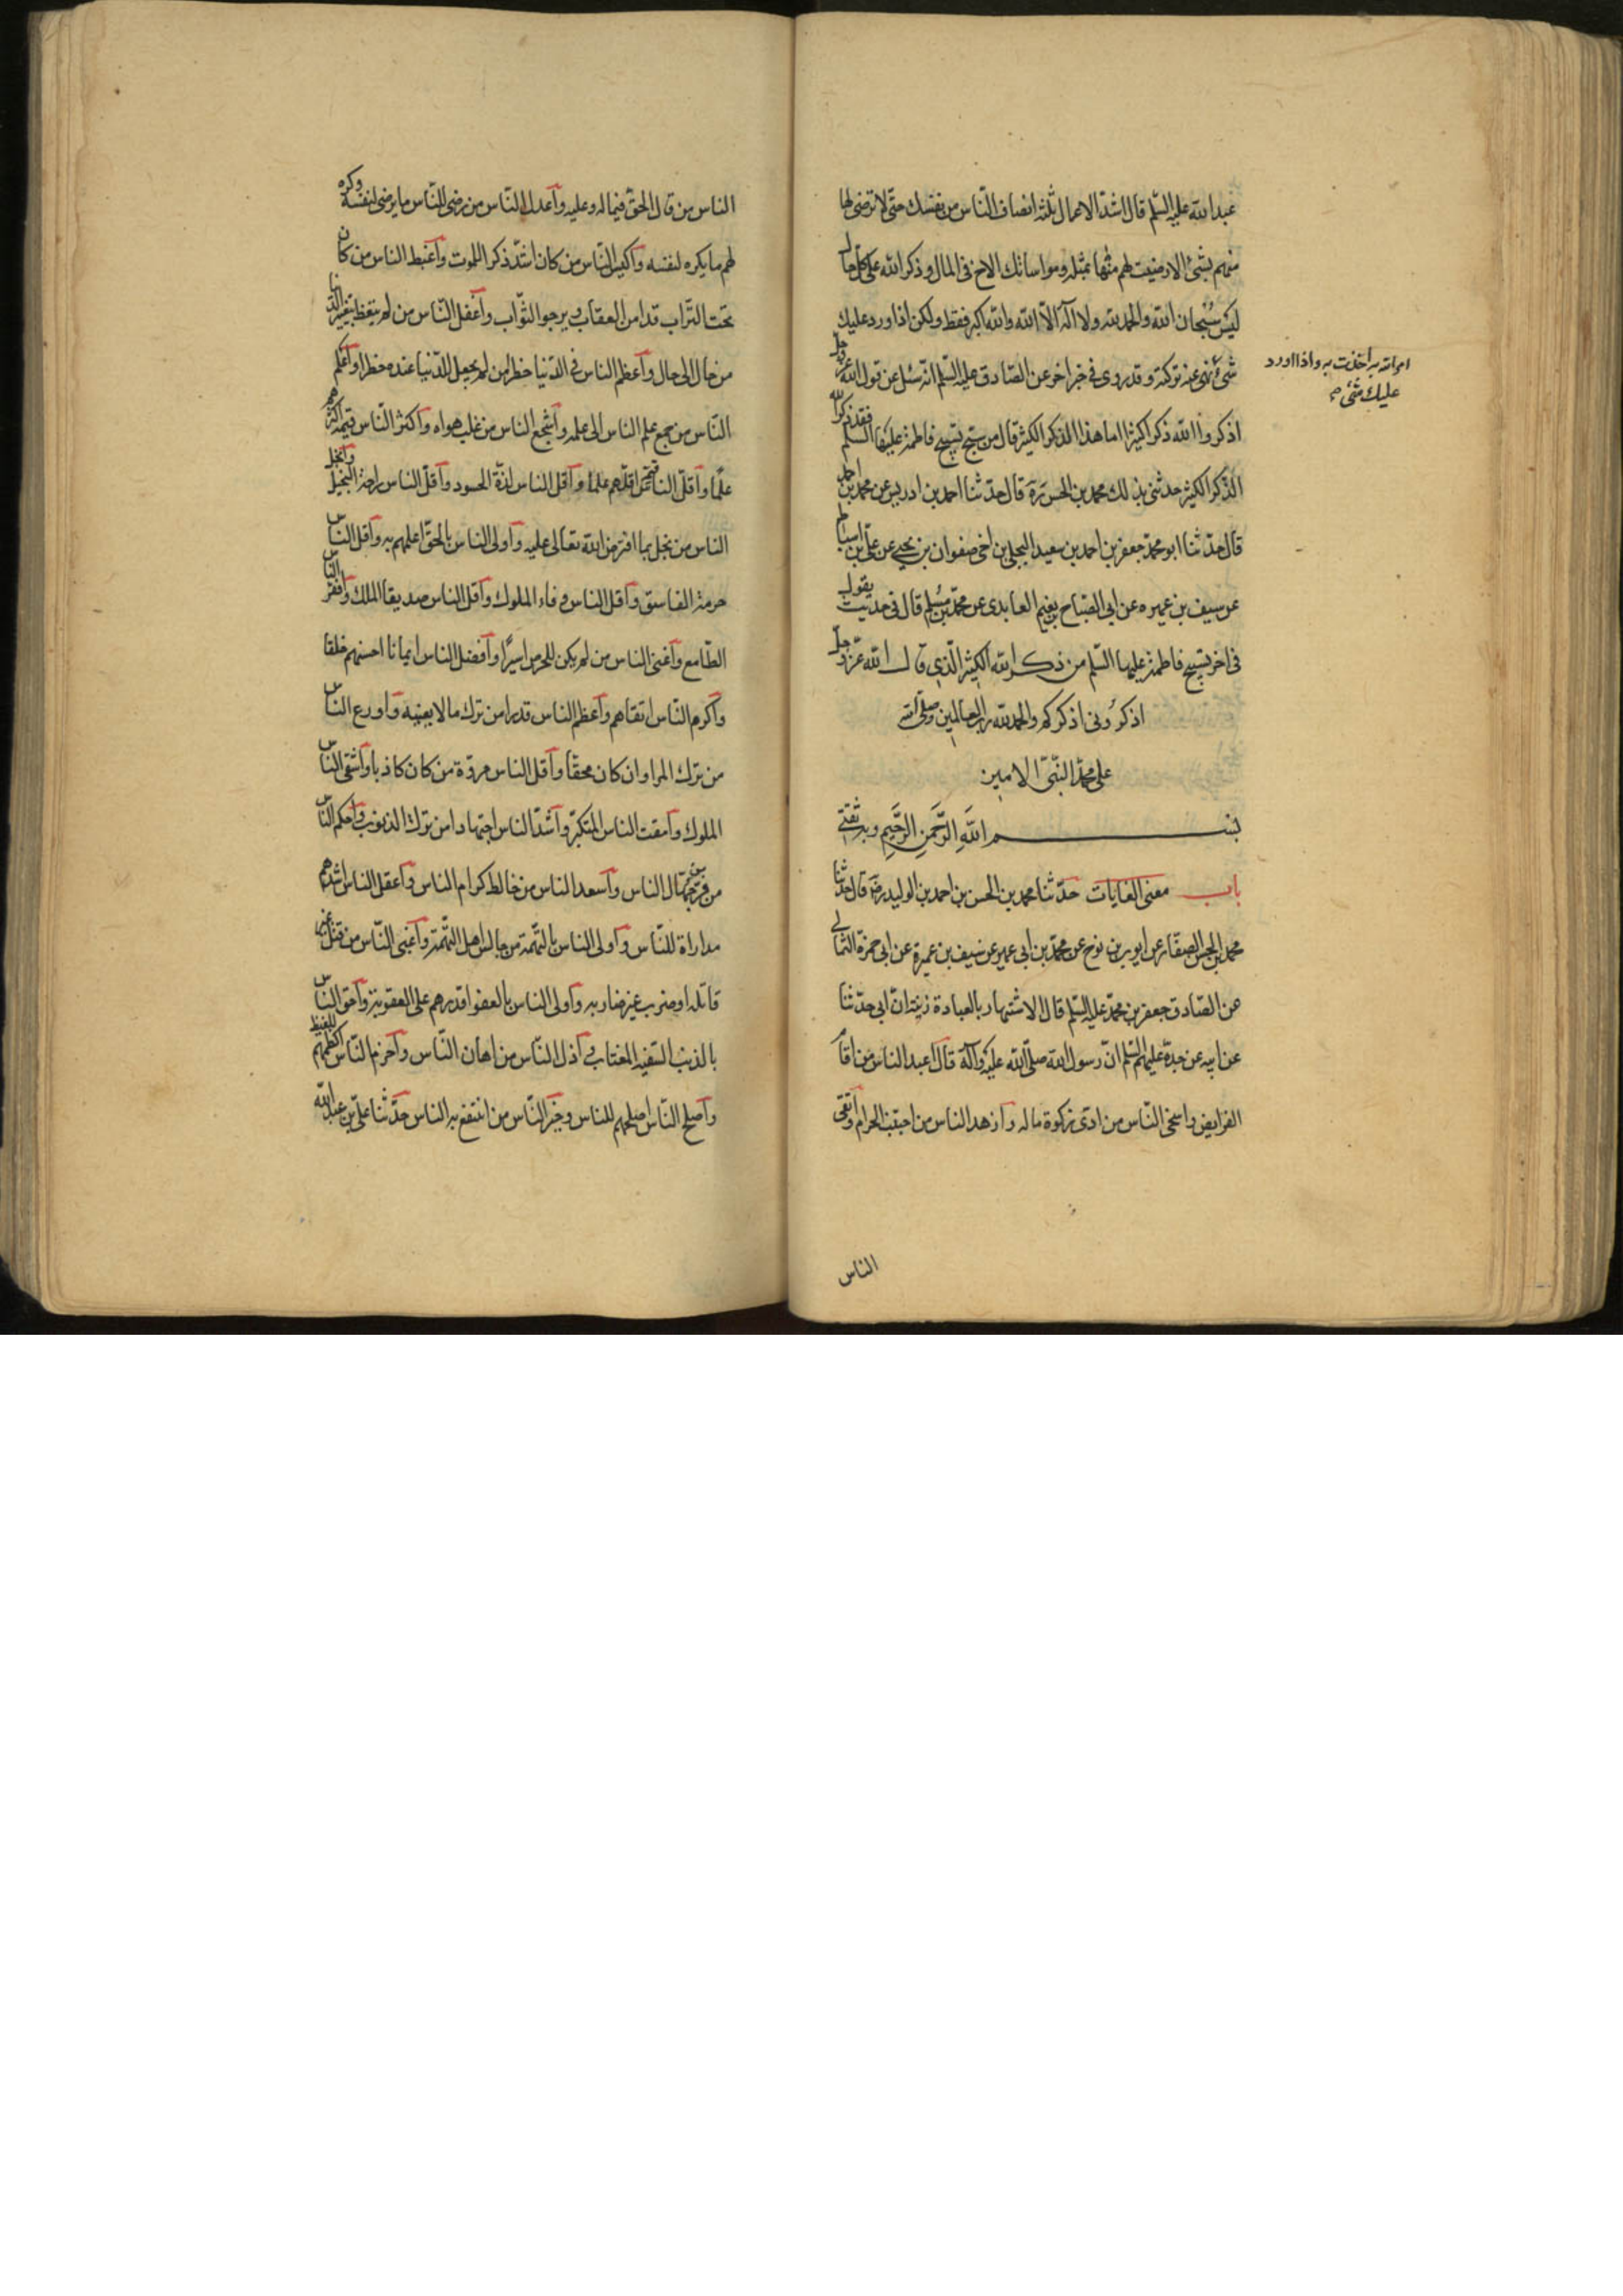 عبد الله عليه السّلم قال اشدّ الاعمال ثلثة انصاف النّاس من نفسك حتّى لا ترضى لها
منهم بشئ الا رضيت لهم منها بمثله ومواساتك الاخ فى المال وذكر الله على كل حال
ليس سُبحان الله والحمد لله ولا اله الاّ الله والله اكبر فقط ولكن اذا ورد عليك
شئ نهى عنه تركته وقد روى فى خبر اخر عن الصّادق عليه السّلم انّه سُئل عن قول الله عزّ وجلّ
اذكروا الله ذكرا كثيرًا ما هذا الذكر الكثير قال من سبّح تسبيح فاطمة عليها السّلم فقد ذكر الله
الذّكر الكثير حدثنى بذلك محمد بن الحسن ره قال حدّثنا احمد بن ادريس عن محمد بن احمد
قال حدّثنا ابو محمّد جعفر بن احمد بن سعيد البجلى بن اخى صفوان بن يحيى عن على بن اسباط
عن سيف بن عميره عن ابى الصّباح بن نعيم العابدى عن محمّد بن مُسلم قال فى حديث يقول
فى اخره تسبيح فاطمة عليها السّلم من ذكر الله الكثير الّذى قال الله عزّ وجلّ
اذكرُونى اذكركم والحمد لله ربّ العالمين وصلّى الله
على محمّد النّبىّ الامين
بسم اللهِ الرَّحمنِ الرَّحيمِ وبه ثقتى
باب معنى الغايات حدّثنا محمد بن الحسن بن احمد بن الوليد رضه قال حدّثنا
محمد بن الحسن الصفّار عن ايوب بن نوح عن محمّد بن ابى عمير عن سيف بن عميرة عن ابى حمزة الثمالى
عن الصّادق جعفر بن محمّد عليه السّلم قال الاشتهار بالعبادة ريبة انّ ابى حدّثنا
عن ابيه عن جدّه عليهم السّلم انّ رسول الله صلّى الله عليه وآله قال اعبد الناس من اقام
الفرايض واسخى النّاس من ادّى زكوة ماله وازهد الناس من اجتنب الحرام واتقى
الناس
عليك شئ
الناس من قال الحقّ فيما له وعليه واعدل النّاس من رضى للنّاس ما يرضى لنفسه وكره
لهم ما يكره لنفسه واكيس النّاس من كان اشدّ ذكرا للموت واغبط الناس من كان
تحت التّراب قد امن العقاب ويرجو الثّواب واغفل النّاس من لم يتّعظ بتغيّر الدّنيا
من حال الى حال واعظم الناس فى الدّنيا خطرا من لم يجعل للدّنيا عنده خطرا واعلم
النّاس من جمع علم الناس الى علمه واشجع الناس من غلب هواه واكثر النّاس قيمة اكثرهم
علمًا واقلّ الناس قيمة اقلّهم علمًا واقل الناس لذّة الحسود واقلّ الناس راحة البخيل وابخل
الناس من بخل بما افترض الله تعالى عليه واولى الناس بالحقّ اعلمهم به واقل الناس
حرمة الفاسق واقل الناس وفاء الملوك واقل الناس صديقا الملك وافقر الناس
الطّامع واغنى الناس من لم يكن للحرص اسيرًا وافضل الناس ايمانا احسنهم خلقا
واكرم النّاس اتقاهم واعظم الناس قدرا من ترك ما لا يعنيه واورع الناس
من ترك المرا وان كان محقّا واقل الناس مروّة من كان كاذبا واشقى الناس
الملوك وامقت الناس المتكبّر واشدّ الناس اجتهادا من ترك الذنوب واحكم النّاس
من فرّ من جهّال الناس واسعد الناس من خالط كرام الناس واعقل الناس اشدهم
مداراة للنّاس واولى الناس بالتّهمة من جالس اهل التّهمة واعتى النّاس من قتل غير
قاتله او ضرب غير ضاربه واولى الناس بالعفو اقدرهم على العقوبة واحق الناس
بالذنب السّفيه المغتاب واذل النّاس من اهان النّاس واحزم النّاس اكظمهم للغيظ
واصلح النّاس اصلحهم للناس وخير النّاس من انتفع به الناس حدّثنا علىّ بن عبد الله